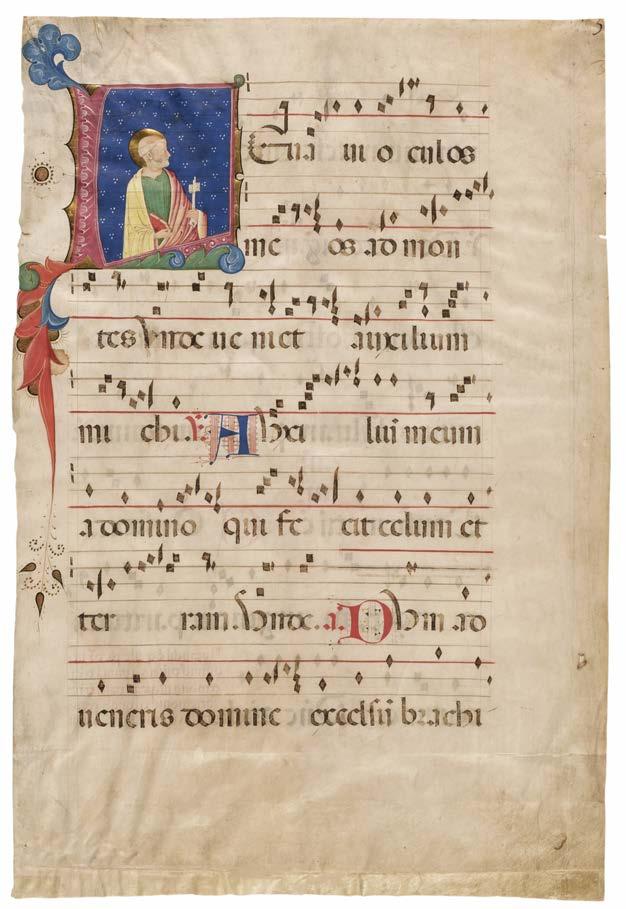 LEua ui o culos
me os ad mon
tes Vnde ue niet auxilium
mi chi. V. AVxi liū meum
a domino qui fe cit celum et
ter ram. Vnde. a. DVm ad
ueneris domine excelsū brachi